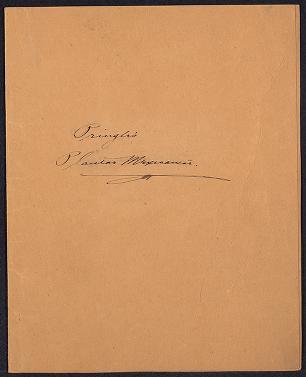 Pringle's
Plantae Mexicanae.